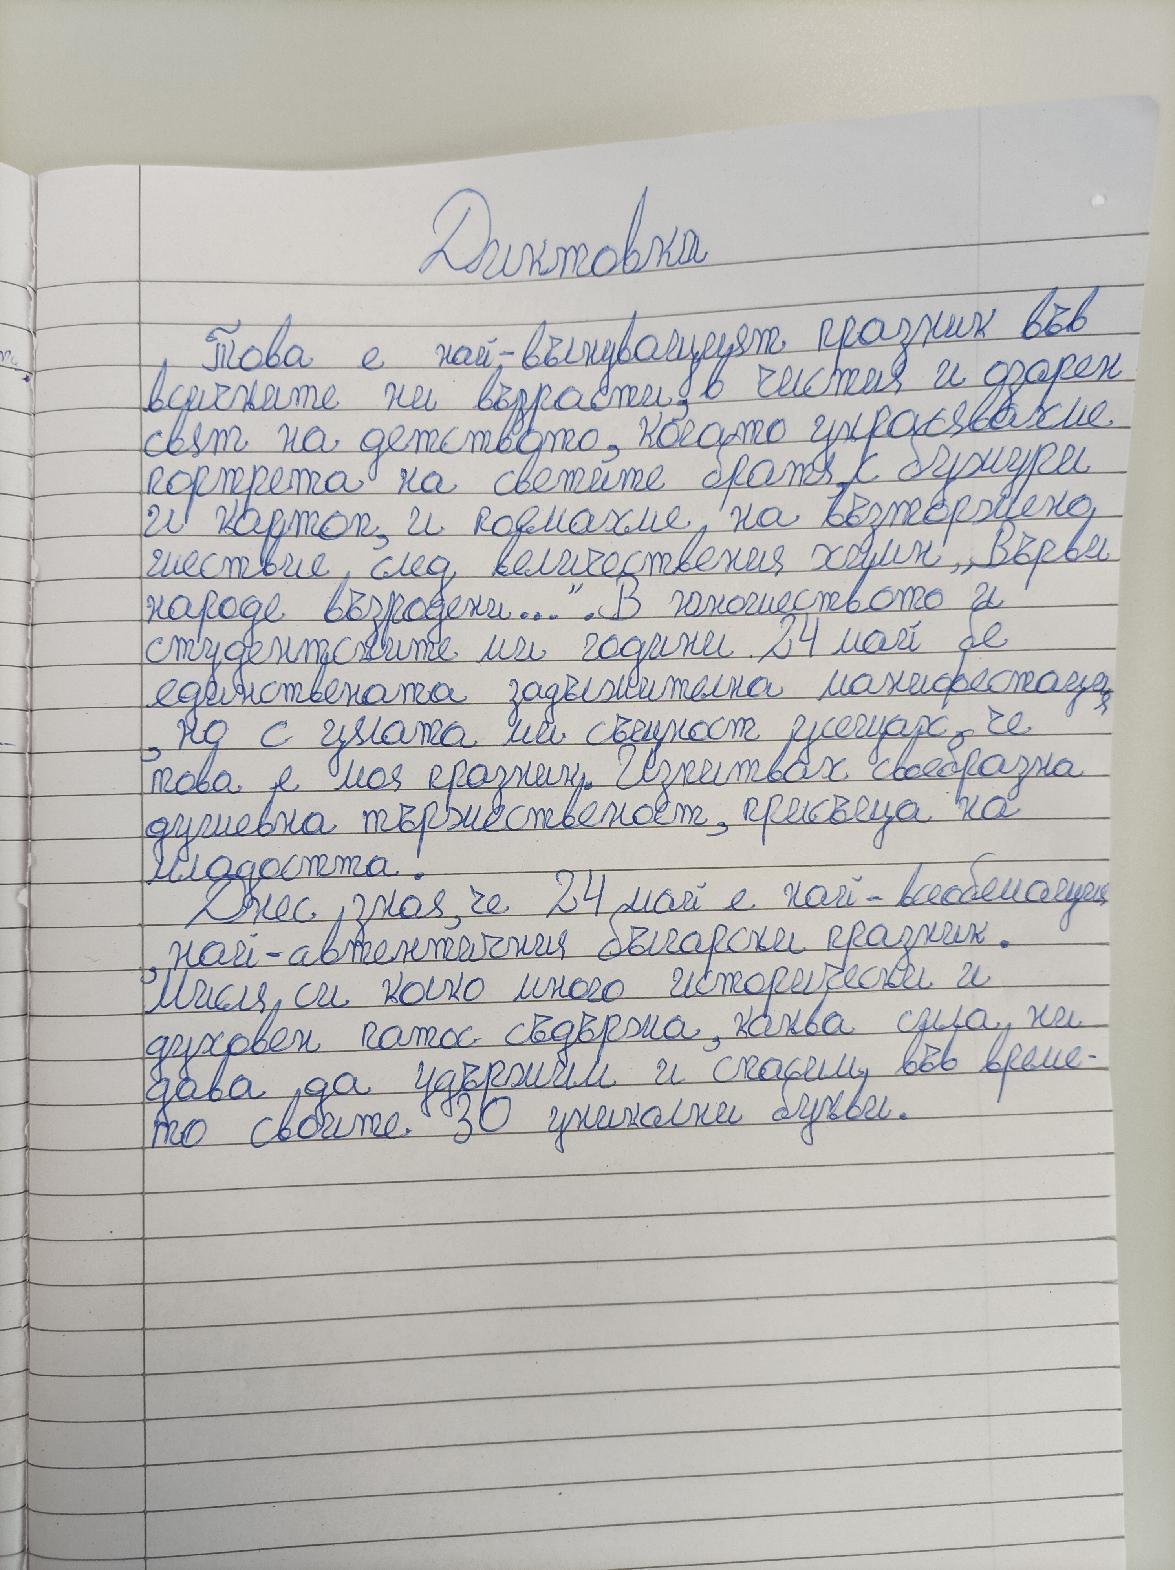 Диктовка
Това е най-вълнуващият празник във
всичките ни възрасти, в чистия и озарен
свят на детството, когато украсявахме
портрета на светите братя с божури
и картон, и поемахме на възторжено
шествие след величествения химн „Върви
народе възродени...". В юношеството и
студентските ми години 24 май бе
единствената задължителна манифестация
, но с цялата ми същност усещах, че
това е моя празник. Изпитвах своебразна
душевна тържественост, присъща на
младостта.
Днес зная, че 24 май е най-всеобемащия
, най-автентичния български празник.
Мисля си колко много исторически и
духовен патос съдържа, каква сила ни
дава да удържим и спасим във време-
то своите 30 уникални букви.